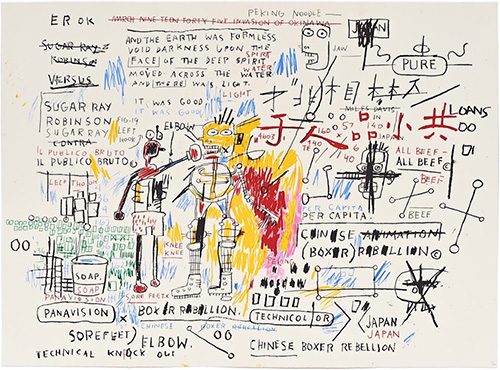 PEKING NOODLE—
EROK
MARCH NINE TEEN FORTY FIVE INVASION OF OKINAWA
JAPAN
AND THE EARTH WAS FORMLESS
VOID DARKNESS UPON THE
FACE OF THE DEEP SPIRIT
MOVED ACROSS THE WATER
AND THERE WAS LIGHT
SPIRIT
WATER
LIGHT
IT WAS GOOD
IT WAS GOOD
JAW
PURE
SUGAR RAY
ROBINSON
VERSUS
SUGAR RAY
ROBINSON
SUGAR RAY
CONTRA
FIG. 19
LEFT
HOOK
IL PUBLICO BRUTO
IL PUBLICO BRUTO©
ELBOW
MILES DAVIS
人品小共
LOANS
JAPAN
ALL BEEF—
ALL BEEF©
BEEF
BEEF
LEEF
PER CAPITA
PER CAPITA
CHINESE ANIMATION
(BOXER) REBELLION©
KNEE
KNEE
SOAP
SOAP
PANAVISION
PANAVISION
SORE FEET
BOXER REBELLION.
CHINESE BOXER REBELLION
TECHNICOLOR
JAPAN
JAPAN
SOREFEET
ELBOW.
TECHNICAL KNOCK OUT
CHINESE BOXER REBELLION